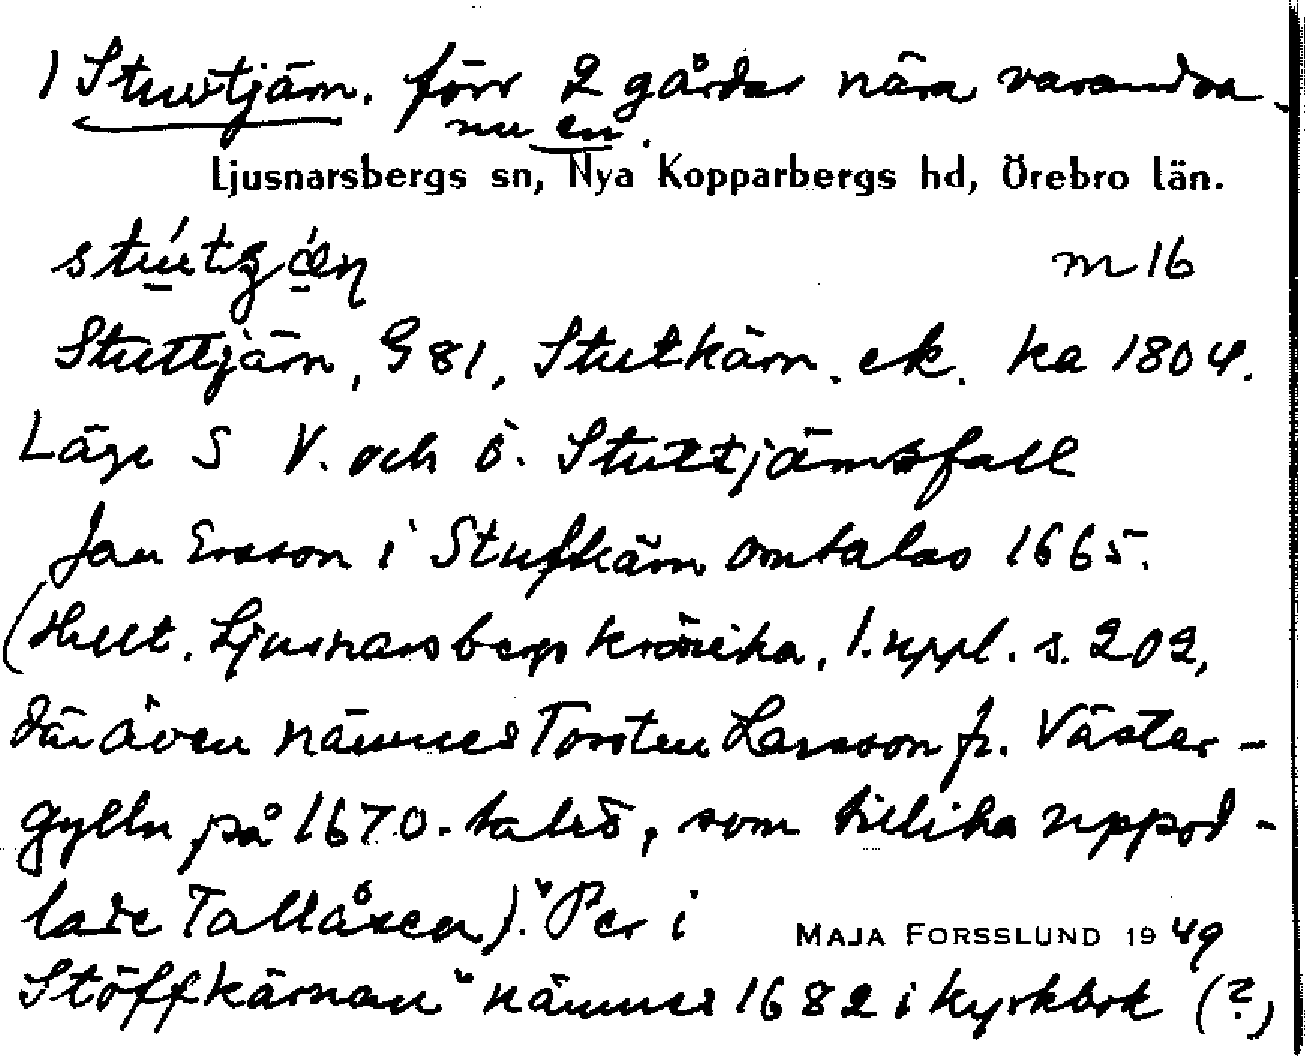 1 Stuvtjärn. förr 2 gårdar nära varandra.
nu en.
Ljusnarsbergs sn, Nya Kopparbergs hd, Örebro län.
m 16
Stuttjärn, G 81, Stutkärn. ek. ka 1804.
Läge S V. och ö. Stuttjärnsfall
Jan Ersson i Stufkärn omtalas 1665.
(Hult. Ljusnarsbergs krönika, 1. uppl. s. 202,
där även nämnes Torsten Larsson fr. Väster-
gylln på 1670-talet, som tillika uppod-
lade Tallåsen). "Per i
MAJA FORSSLUND 1949
Stöffkärnan" nämnes 1682 i kyrkbok (?)